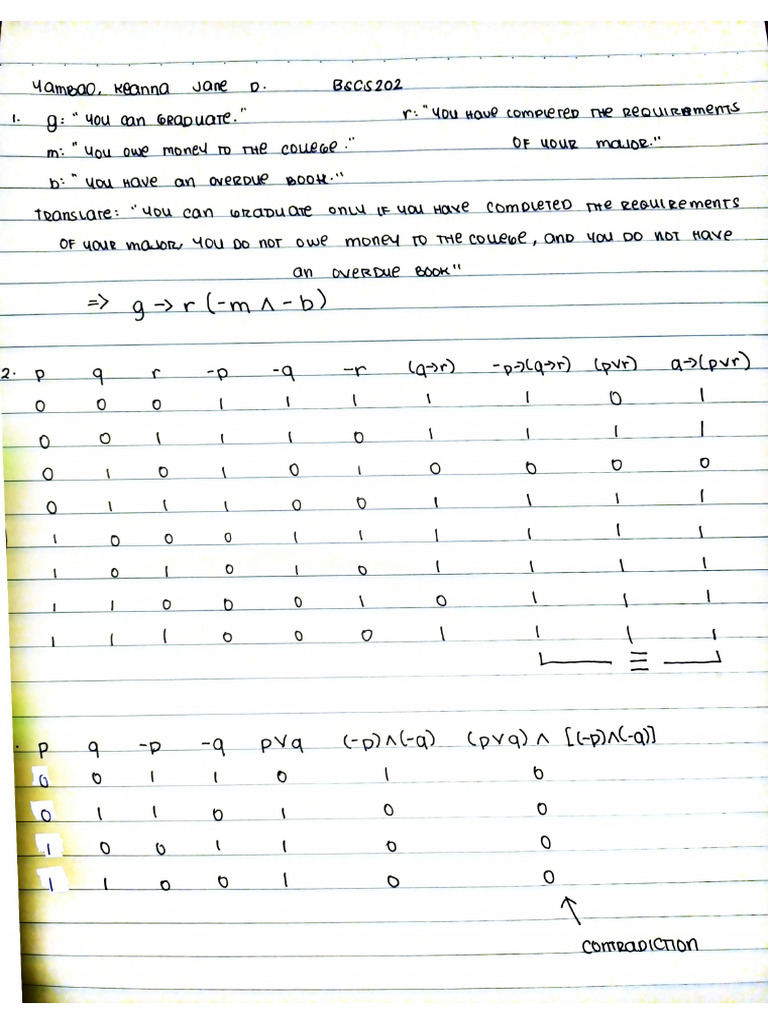 Yambao, Keanna Jane D. BSCS202
1. g: "You can graduate." r: "You have completed the requirements
m: "You owe money to the college." of your major."
b: "You have an overdue book."
Translate: "You can graduate only if you have completed the requirements
of your major, you do not owe money to the college, and you do not have
an overdue book"
=> g → r (-m ∧ -b)
2. p q r -p -q -r (q→r) -p→(q→r) (p∨r) q→(p∨r)
0 0 0 1 1 1 1 1 0 1
0 0 1 1 1 0 1 1 1 1
0 1 0 1 0 1 0 0 0 0
0 1 1 1 0 0 1 1 1 1
1 0 0 0 1 1 1 1 1 1
1 0 1 0 1 0 1 1 1 1
1 1 0 0 0 1 0 1 1 1
1 1 1 0 0 0 1 1 1 1
≡
. p q -p -q p∨q (-p)∧(-q) (p∨q) ∧ [(-p)∧(-q)]
0 0 1 1 0 1 0
0 1 1 0 1 0 0
1 0 0 1 1 0 0
1 1 0 0 1 0 0
↑
Contradiction